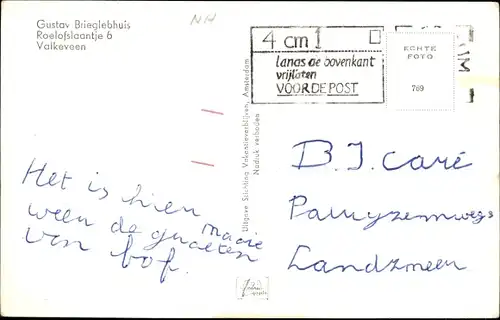 Gustav Brieglebhuis
Roelofslaantje 6
Valkeveen
NH
4 cm
langs de bovenkant
vrijlaten
VOOR DE POST
ECHTE
FOTO
789
Uitgave Stichting Vakantieverblijven, Amsterdam
Nadruk verboden
Het is hier
maie
weer de groeten
van bof.
B.J. Caré
Landsmeer